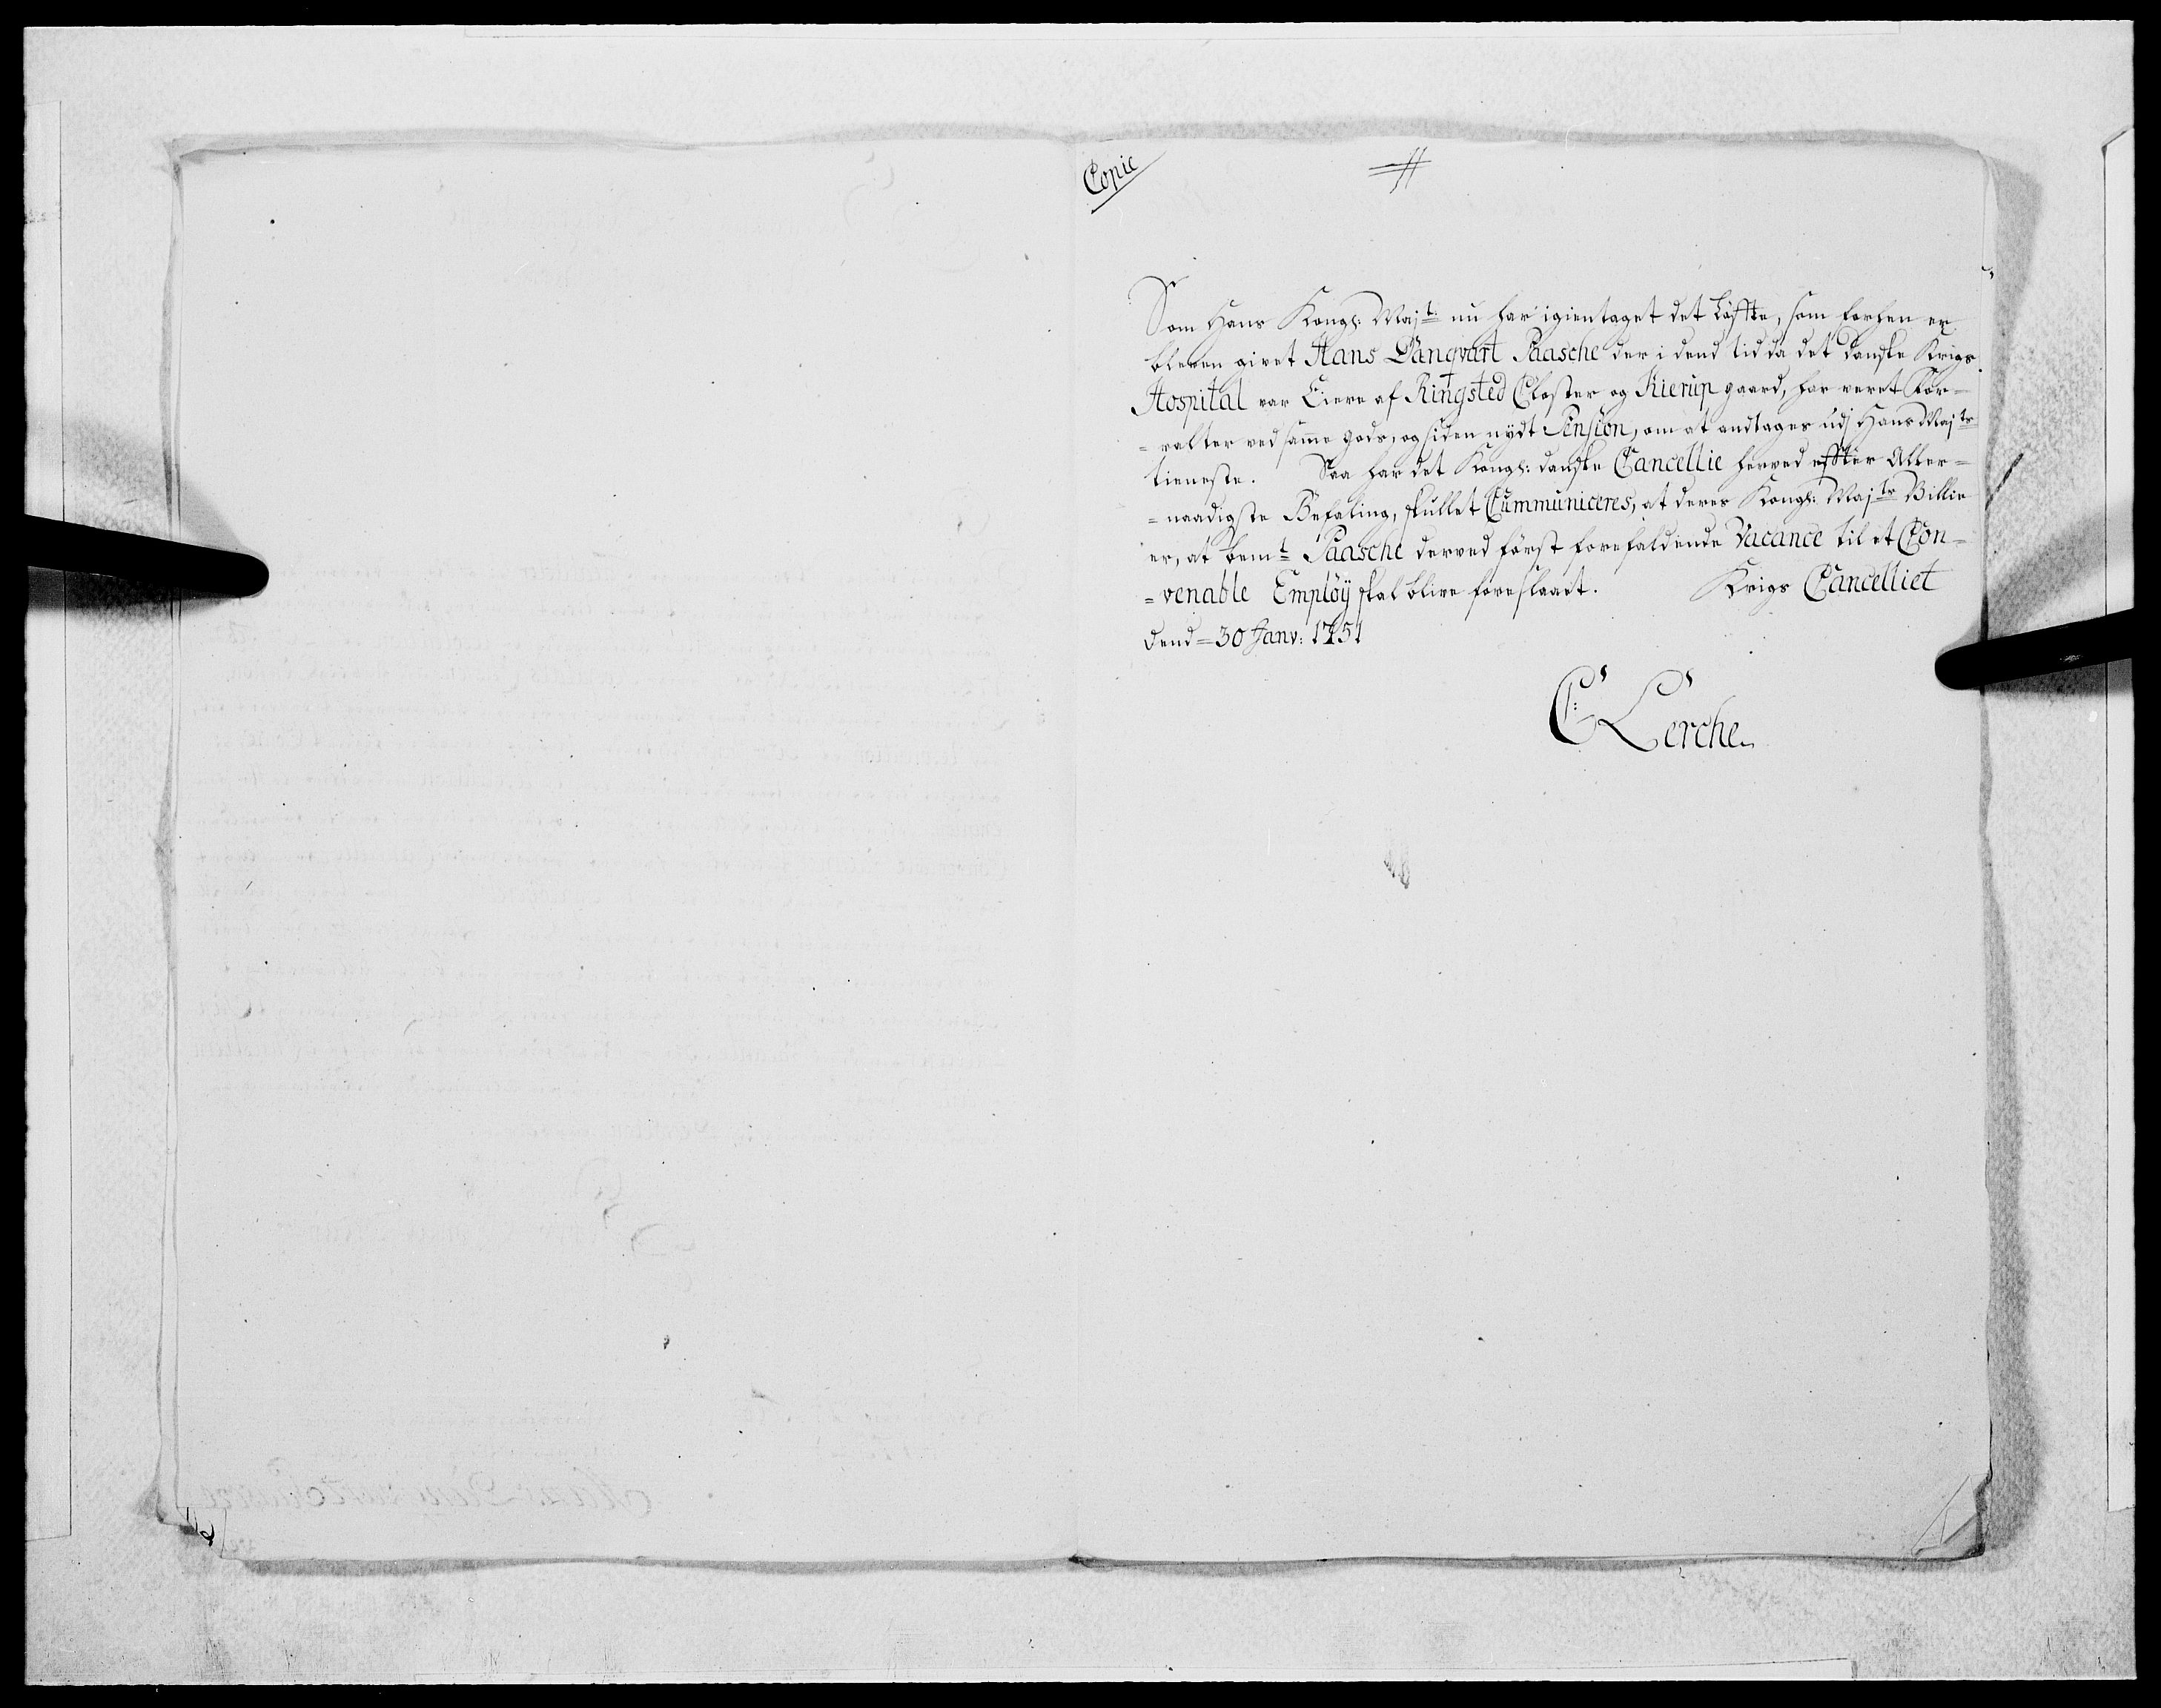 Copie
Som Hans Kongl: Majt: nu har igientaget det Løffte, som forhen er
bleven givet Hans Danqvart Paasche der i dend tid da det danske Krigs
Hospital var Eiere af Ringsted Closter og Kierup gaard, har veret For-
=valter ved samme gods, og siden nydt Pension, om at andtages udj Hans Majts
tieneste. Saa har det Kongl: danske Cancellie herved effter Aller=
=naadigste Befaling, skullet Cummuniceres, at deres Kongl: Majts Villie
er, at bemt Paasche derved først forefaldende Vacance til et Con=
=venable Employ skal blive foreslaaet. Krigs Cancelliet
Dend = 30 Janv: 1751
C: Lerche.